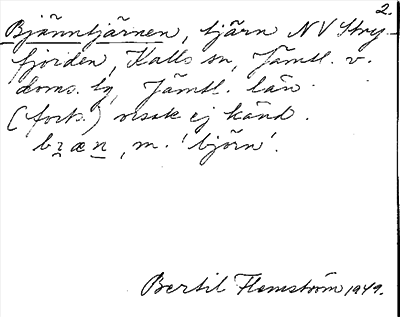 2.
Bjänntjärnen, tjärn NV Stry-
fjorden, Kalls sn, Jämtl. v.
doms. tg, Jämtl. län.
(forts.) orsak ej känd.
bræn, m. 'björn'.
Bertil Flemström 1949.